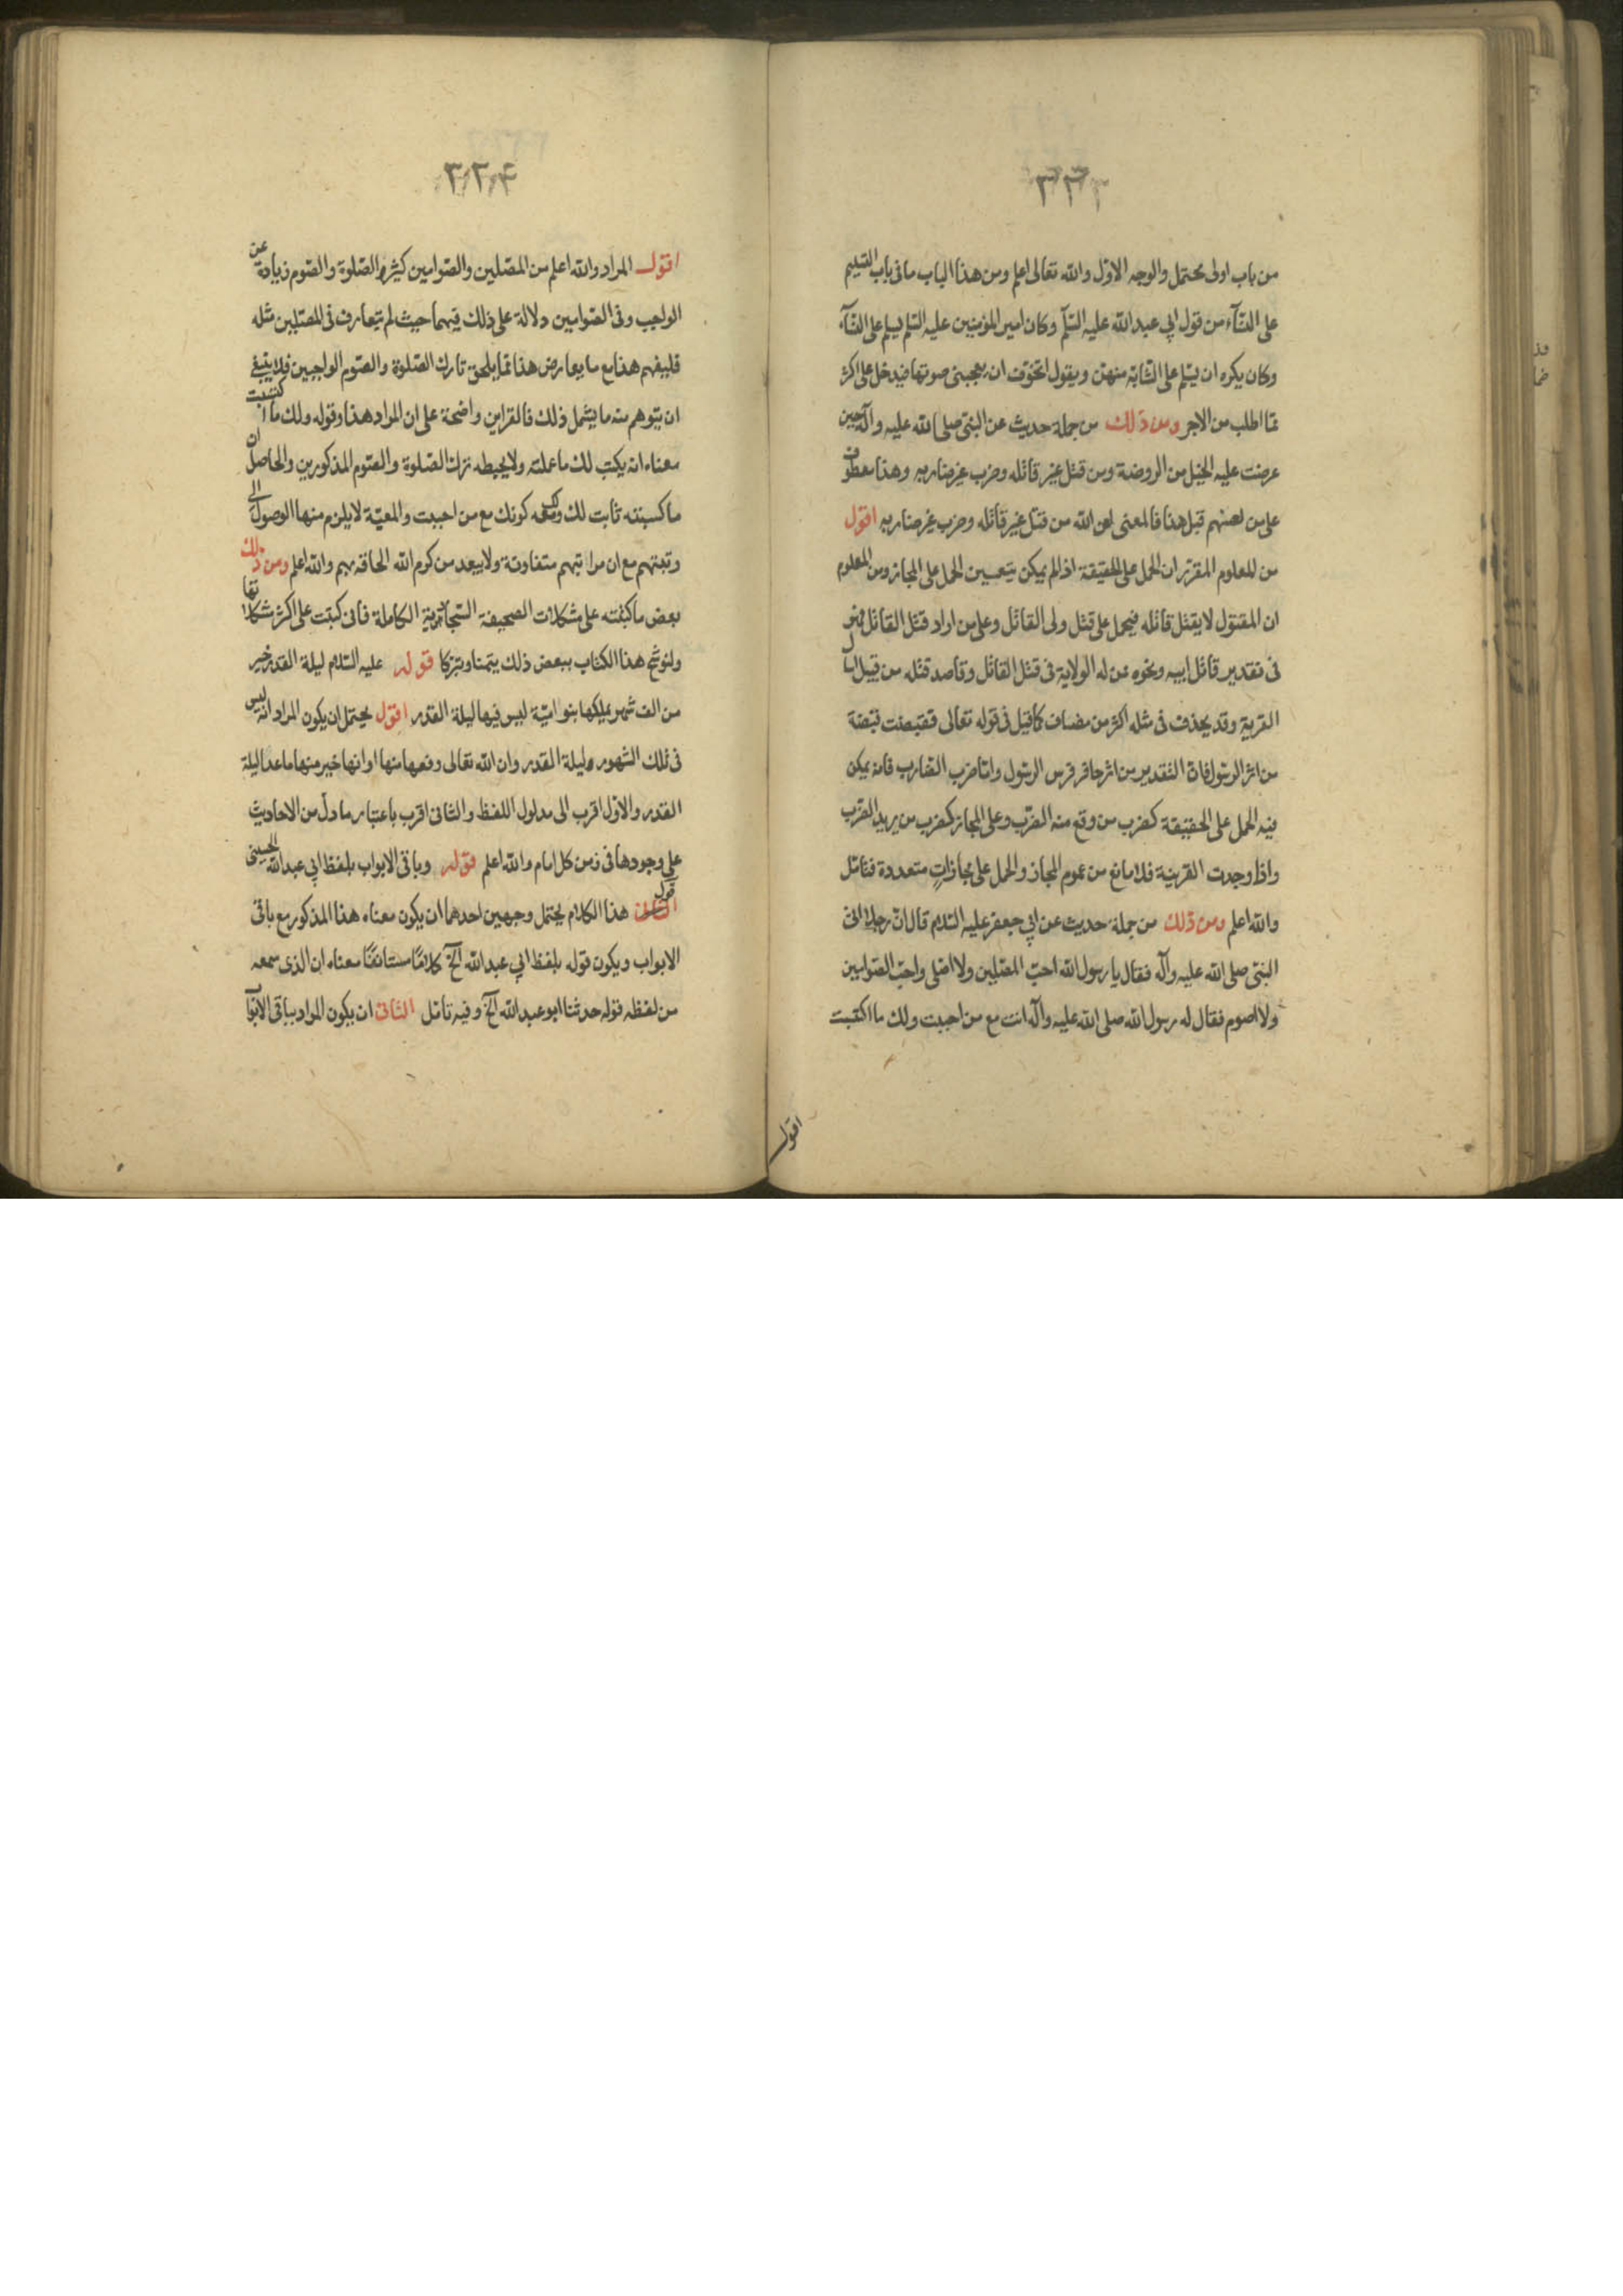 ٢٢٣
من باب اولى محتمل والوجه الاوّل والله تعالى اعلم ومن هذا الباب ما فى باب التسليم
على النسآء من قول ابي عبد الله عليه السّلم وكان امير المؤمنين عليه السلم يسلم على النسآء
وكان يكره ان يسلم على الشابّة منهنّ ويقول اتخوّف ان يعجبنى صوتها فيدخل على اكثر
ممّا اطلب من الاجر ومن ذلك من جملة حديث عن النبىّ صلى الله عليه وآله حين
عرضت عليه الخيل من الروضة ومن قتل غير قاتله وضرب غير ضاربه وهذا معطوف
على من لعنهم قبل هذا فالمعنى لعن الله من قتل غير قاتله وضرب غير ضاربه اقول
من المعلوم المقرّر ان الحمل على الحقيقة اذا لم يمكن يتعيين الحمل على المجاز ومن المعلوم
ان المقتول لا يقتل قاتله فيحمل على قتل ولى القاتل وعلى من اراد قتل القاتل فهو
فى تقدير قاتل ابيه ونحوه عن له الولاية فى قتل القاتل وقاصد قتله من قبيل اسأل
القرية وقد يحذف فى مثله اكثر من مضاف كما قيل فى قوله تعالى فقبضت قبضة
من اثر الرسول فان التقدير من اثر حافر فرس الرسول وامّا ضرب الضارب فانه يمكن
فيه الحمل على الحقيقة كضرب من وقع منه الضّرب وعلى المجاز كضرب من يريد الضّرب
واذا وجدت القرينة فلا مانع من عموم المجاز والحمل على مجازاتٍ متعددة فتامّل
والله اعلم ومن ذلك من جملة حديث عن ابي جعفر عليه السّلام قال انّ رجلا اتى
النبىّ صلى الله عليه وآله فقال يا رسول الله احبّ المصّلين ولا اصلى واحبّ الصّوامين
ولا اصوم فقال له رسول الله صلى الله عليه وآله انت مع من احببت ولك ما اكتسبت
اقول
٢٢٤
اقول المراد والله اعلم من المصّلين والصّوامين كثيروا الصّلوة والصّوم زيادة عن
الواجب وفى الصّوامين دلالة على ذلك فيهما حيث لم يتعارف فى المصّلين مثله
فليفهم هذا مع ما يعارض هذا ممّا يلحق تارك الصّلوة والصّوم الواجبين فلا ينبغى
ان يتوهم منه ما يشمل ذلك فالقراين واضحة على ان المراد هذا وقوله ولك ما اكتسبت
معناه انه يكتب لك ما عملته ولا يحبطه ترك الصّلوة والصّوم المذكورين والحاصل ان
ما كسبته ثابت لك كونك مع من احببت والمعيّة لا يلزم منها الوصول الى
رتبتهم مع ان مراتبهم متفاوتة ولا يبعد من كرم الله الحاقه بهم والله اعلم ومن ذلك
بعض ما كتبته على مشكلات الصحيفة السّجّاديّة الكاملة فانى كتبت على اكثر مشكلاتها
ولنوشّح هذا الكتاب ببعض ذلك يتمنا وتبرّكا قوله عليه السّلام ليلة القدر خير
من الف شهر يملكها بنو اميّة ليس فيها ليلة القدر اقول يحتمل ان يكون المراد انه ليس
فى تلك الشهور ليلة القدر وان الله تعالى رفعها منها او انها خير منها ما عدا ليلة
القدر والاوّل اقرب الى مدلول اللفظ والثانى اقرب باعتبار ما دلّ من الاحاديث
على وجودها فى زمن كل امام والله اعلم قوله وباقى الابواب بلفظ ابي عبد الله الحسينى
اقول هذا الكلام يحتمل وجهين احدهما ان يكون معناه هذا المذكور مع باقى
الابواب ويكون قوله بلفظ ابي عبد الله الخ كلامًا مستانفًا معناه ان الذى سمعه
من لفظه قوله حدثنا ابو عبد الله الخ وفيه تامّل الثانى ان يكون المراد بباقى الابوآ